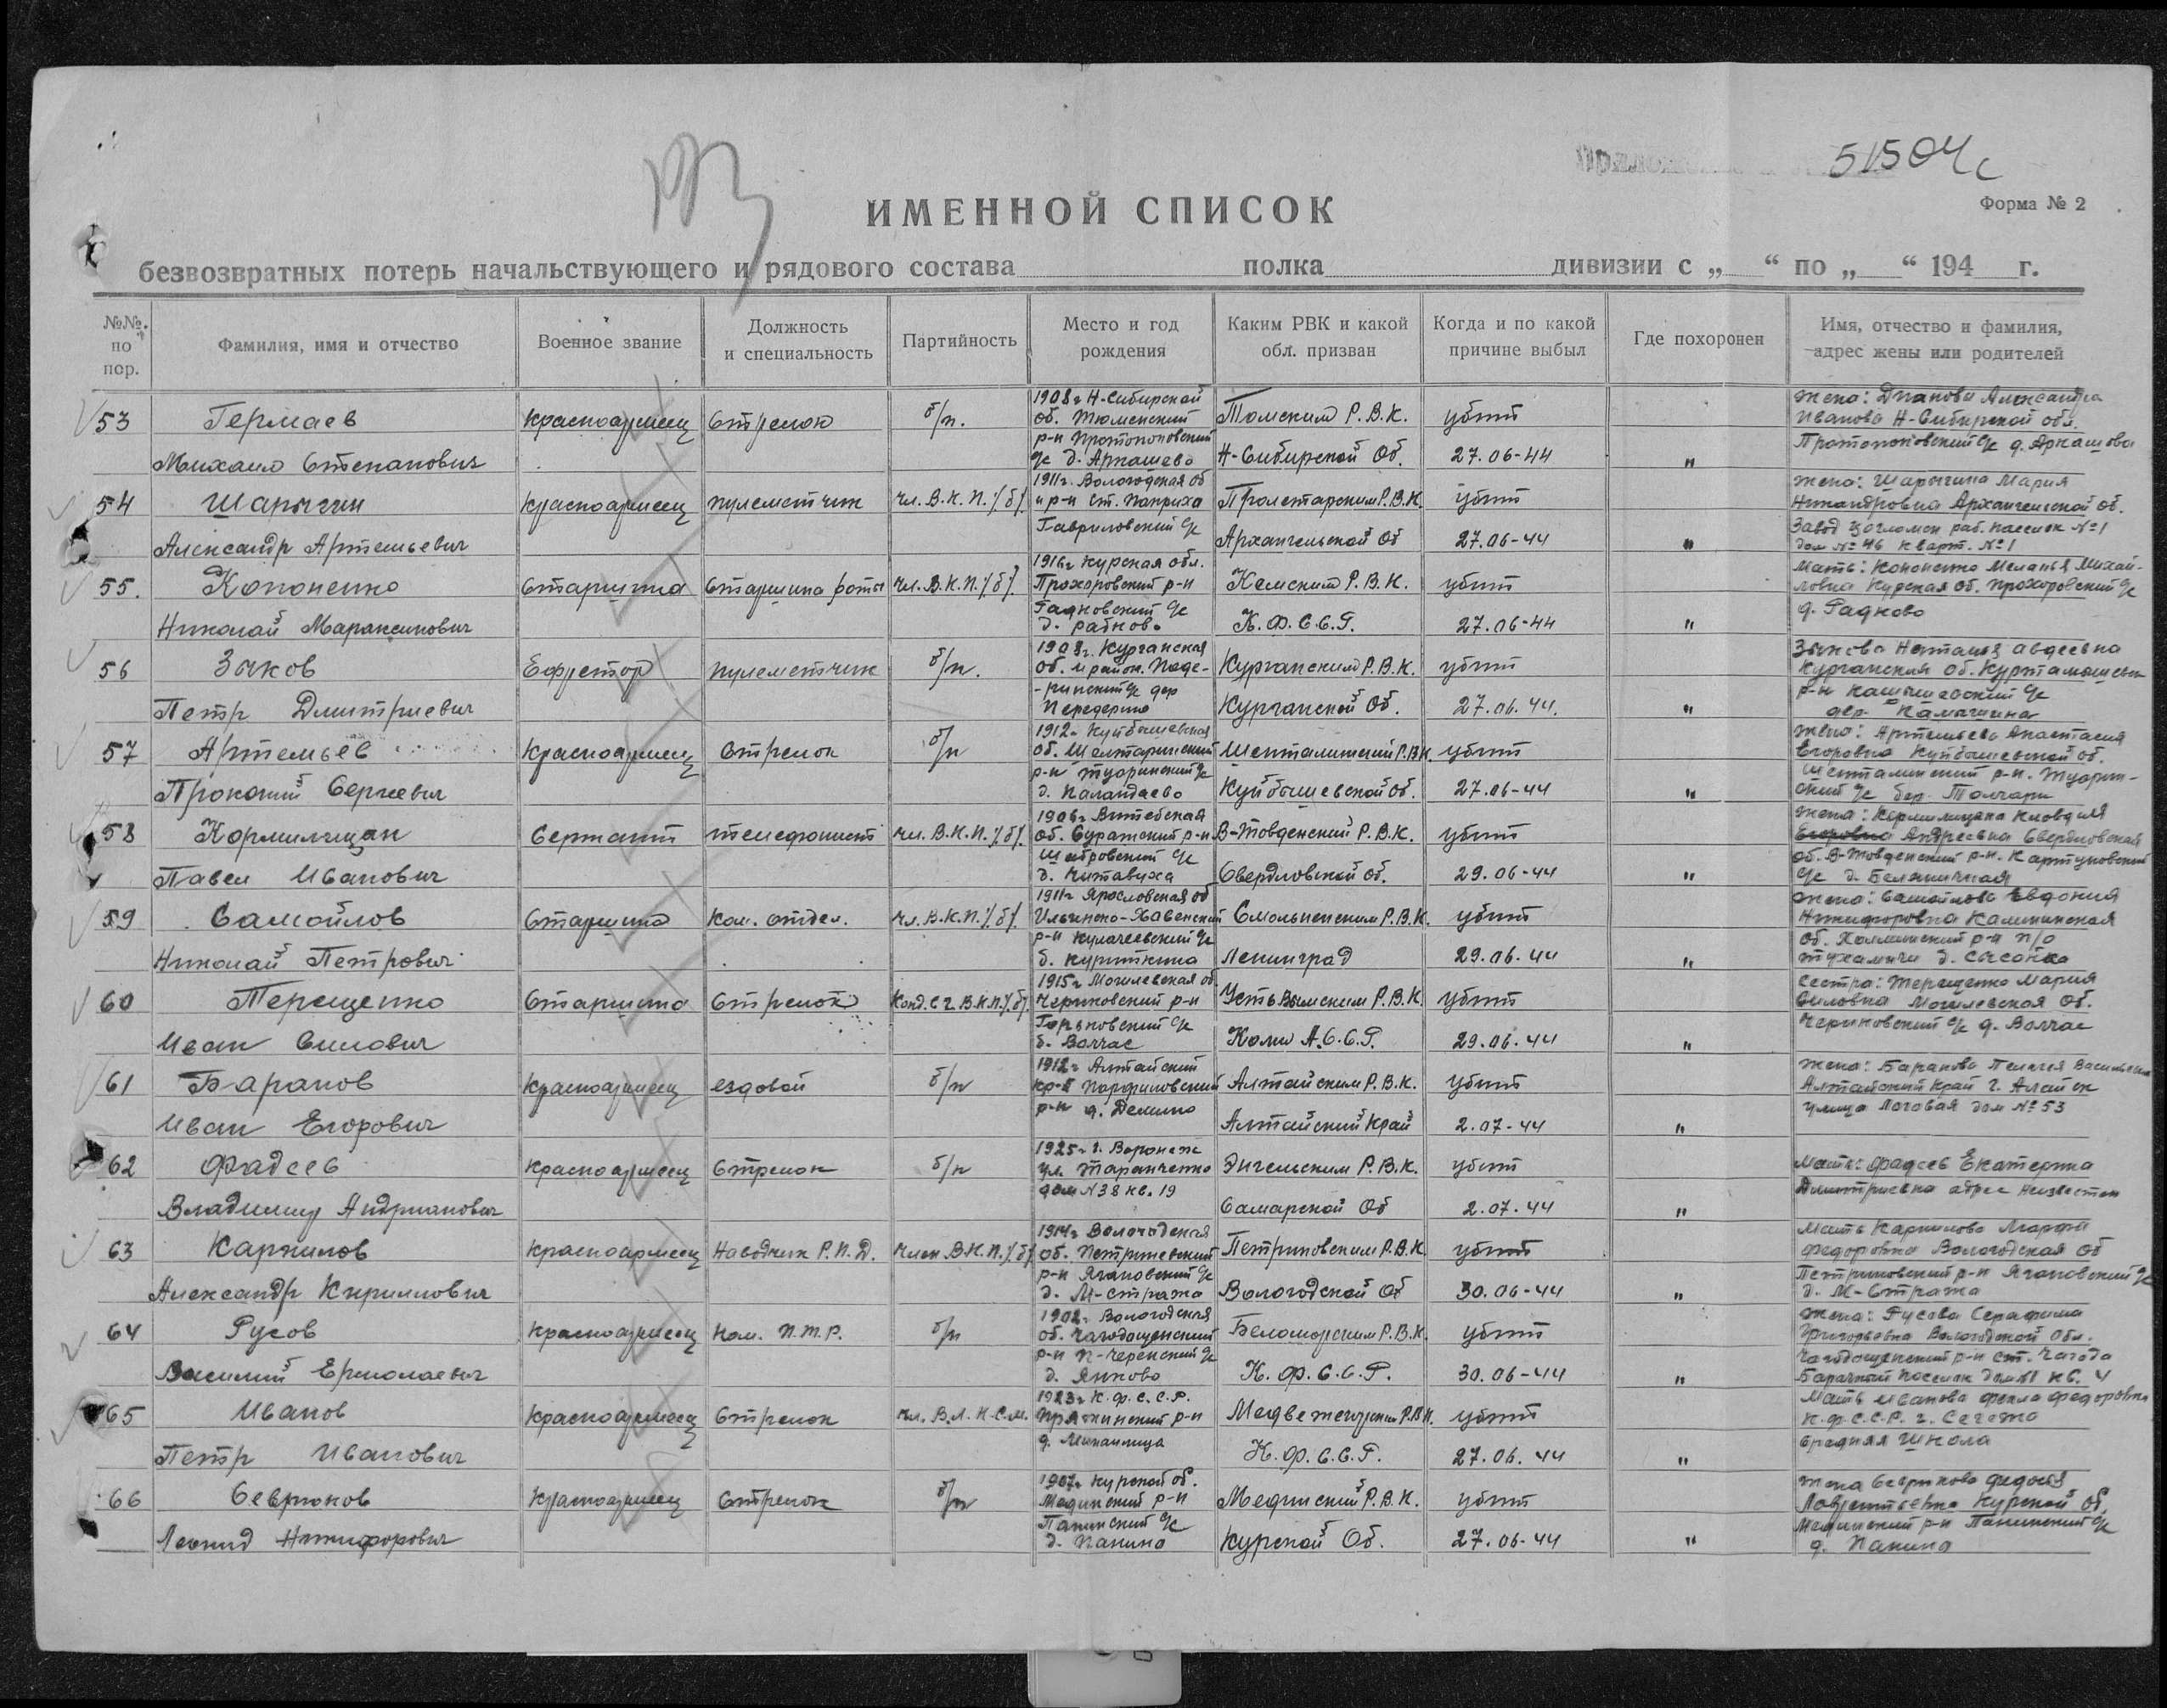 51504с
Форма № 2
ИМЕННОЙ СПИСОК
безвозвратных потерь начальствующего и рядового состава полка дивизии с „ “ по „ “ 194 г.
№№ по пор.
Фамилия, имя и отчество
Военное звание
Должность и специальность
Партийность
Место и год рождения
Каким РВК и какой обл. призван
Когда и по какой причине выбыл
Где похоронен
Имя, отчество и фамилия, адрес жены или родителей
53 Гермаев Красноармеец Стрелок б/п. Томским Р.В.К. убит
Михаил Степанович Н-Сибирской Об. 27.06-44 "
1908г Н-Сибирской
об. Тюменский
р-н Протопоповский
с/с д. Аркашево
Жена: Александра
Иванова Н-Сибирской обл.
Протопоповский с/с д. Аркашова
54 Шарыгин Красноармеец пулеметчик чл. В.К.П./б/. Пролетарским Р.В.К. убит
Александр Артемьевич Архангельской Об 27.06-44 "
1911г. Вологодская об
и р-н ст. Паприха
Гавриловский с/с
Жена: Шарыгина Мария
Никандровна Архангельской об.
Завод раб. поселок №1
дом №46 кварт. №1
55. Кононенко Старшина Старшина роты чл. В.К.П./б/. Кемским Р.В.К. убит
Николай Мараксинович К.Ф.С.С.Р. 27.06-44 "
1916г Курская обл.
Прохоровский р-н
с/с
Мать: Кононенко Меланья Михай-
ловна Курская об. Прохоровский с/с
56 Зыков Ефрейтор пулеметчик б/п. Курганским Р.В.К. убит
Петр Дмитриевич Курганской Об. 27.06.44. "
1908г. Курганская
Зыкова Наталья Авдеевна
Курганская об. Куртамышевск
р-н с/с
дер. Камагина
57 Артемьев Красноармеец Стрелок б/п Шенталинский Р.В.К. убит
Прокопий Сергеевич Куйбышевской об. 27.06-44 "
1912г Куйбышевская
р-н Туаринский с/с
д. Каландаево
Жена: Артемьева Анастасия
Егоровна Куйбышевской об.
Шенталинский р-н. Туарин-
ский с/с
58 Кормильцан Сержант телефонист чл. В.К.П./б/. В-Товденский Р.В.К. убит
Павел Иванович Свердловской об. 29.06-44 "
1906г Витебская
об. Суражский р-н
с/с
д. Читавуха
Жена: Клавдия
Андреевна Свердловская
об. В-Товденский р-н.
59 Самойлов Старшина Ком. отдел. чл. В.К.П./б/. Смольненским Р.В.К. убит
Николай Петрович Ленинград 29.06.44 "
1911г Ярославская об
Ильинско-Хованский
р-н с/с
Жена: Самойлова Евдокия
Никифоровна Калининская
60 Терещенко Старшина Стрелок Канд. в чл. В.К.П./б/. Усть-Вымским Р.В.К. убит
Иван Силович Коми А.С.С.Р. 29.06.44 "
1915г Могилевская об.
Чериковский р-н
Горьковский с/с
Сестра: Терещенко Мария
Силовна Могилевская Об.
Чериковский с/с
61 Баранов Красноармеец ездовой б/п Алтайским Р.В.К. убит
Иван Егорович Алтайский Край 2.07-44 "
1912г Алтайский
кр-й Парфиновский
р-н д. Демино
Жена: Баранова Пелагея Васильевна
Алтайский край г. Алейск
улица Логовая дом №53
62 Фадеев Красноармеец Стрелок б/п Энгельским Р.В.К. убит
Владимир Андрианович Самарской Об 2.07.44 "
1925г г. Воронеж
ул. Таранченко
дом №38 кв. 19
Мать: Фадеев Екатерина
Дмитриевна адрес неизвестен
63 Каржилов Красноармеец Наводчик Р.П.Д. Член В.К.П./б/ Петриновским Р.В.К. убит
Александр Кириллович Вологодской Об 30.06-44 "
1914г Вологодская
об. Петриневский
р-н Ягановский с/с
д. М-Стража
Мать Марфа
Федоровна Вологодская об
Петриновский р-н Ягановский с/с
д. М-Стража
64 Русов Красноармеец Ком. П.Т.Р. б/п Беломорским Р.В.К. убит
Василий Ермолаевич К.Ф.С.С.Р. 30.06-44 "
1902г Вологодская
об. Чагодощенский
р-н П-Черенский с/с
д. Янково
Жена: Русова Серафима
Григорьевна Вологодской обл.
Чагодощенский р-н ст. Чагода
Барачный поселок дом 51 кв. 4
65 Иванов Красноармеец Стрелок чл. В.Л.К.С.М. Медвежегорским Р.В.К. убит
Петр Иванович К.Ф.С.С.Р. 27.06.44 "
1923г К.Ф.С.С.Р.
Пряжинский р-н
Мать Иванова Фекла Федоровна
К.Ф.С.С.Р. г. Сегежа
Средняя школа
66 Севрюков Красноармеец Стрелок б/п Медынский Р.В.К. убит
Леонид Никифорович Курской Об. 27.06-44 "
1907г Курской об.
р-н
Панинский с/с
д. Панино
Жена Севрюкова Федосья
Лаврентьевна Курской об.
р-н Панинский с/с
д. Панино